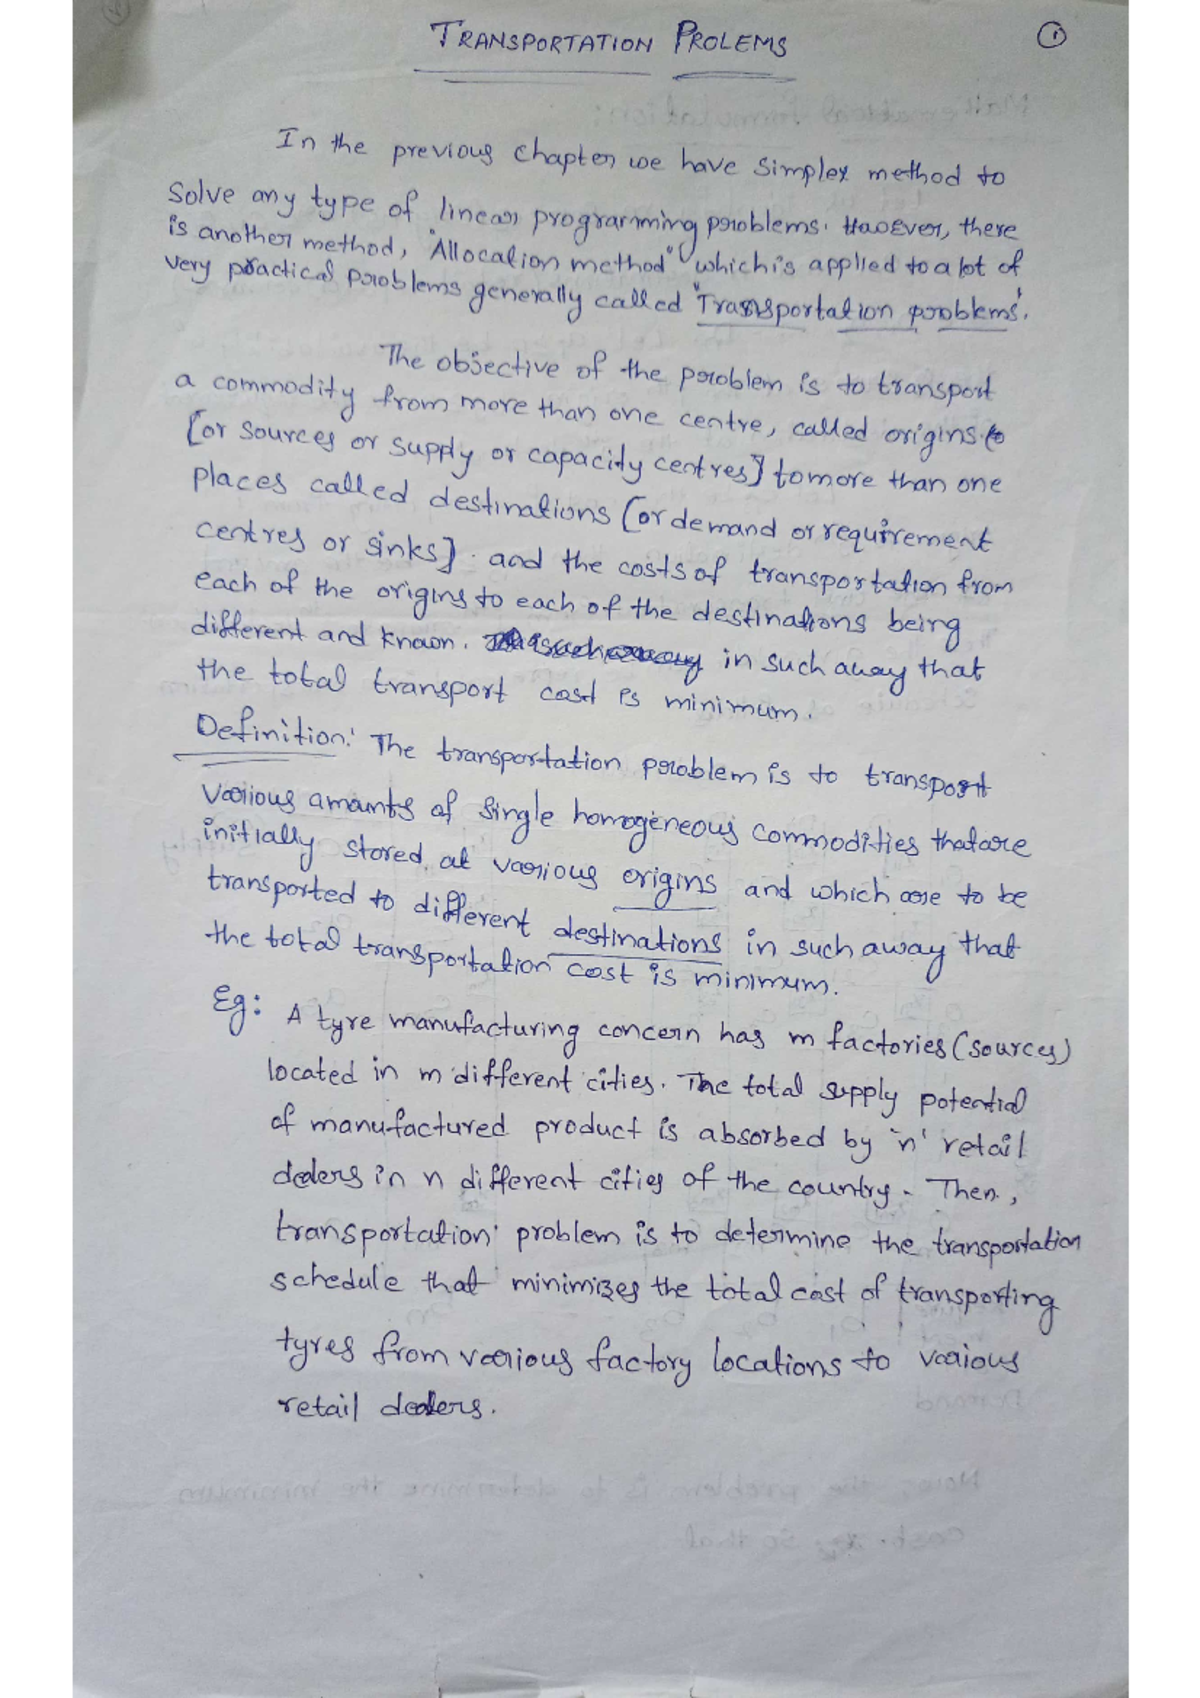 TRANSPORTATION PROLEMS
1
In the previous chapter we have simplex method to
solve any type of linear programming problems. However, there
is another method, "Allocation method" which is applied to a lot of
very practical problems generally called "Transportation problems".
The objective of the problem is to transport
a commodity from more than one centre, called origins
[or sources or supply or capacity centres] to more than one
places called destinations [or demand or requirement
centres or sinks]. and the costs of transportation from
each of the origins to each of the destinations being
different and known. in such away that
the total transport cost is minimum.
Definition: The transportation problem is to transport
various amounts of single homogeneous commodities that are
initially stored at various origins and which are to be
transported to different destinations in such away that
the total transportation cost is minimum.
Eg: A tyre manufacturing concern has m factories (sources)
located in m different cities. The total supply potential
of manufactured product is absorbed by 'n' retail
dealers in n different cities of the country. Then,
transportation problem is to determine the transportation
schedule that minimizes the total cost of transporting
tyres from various factory locations to various
retail dealers.